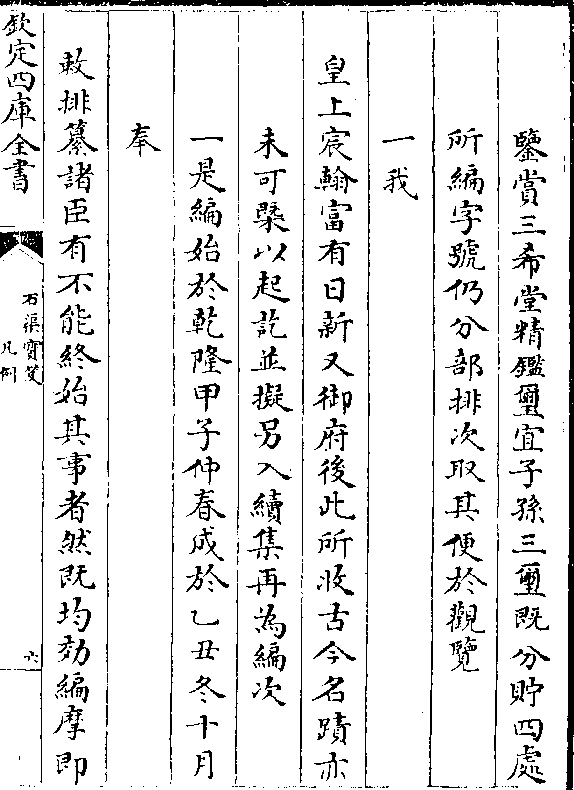 鑒賞三希堂精鑑璽宜子孫三璽既分貯四處
所編字號仍分部排次取其便於觀覽
一我
皇上宸翰富有日新又御府後此所收古今名蹟亦
未可槩以起訖並擬另入續集再為編次
一是編始於乾隆甲子仲春成於乙丑冬十月
奉
敕排纂諸臣有不能終始其事者然既均効編摩即
欽定四庫全書
石渠寶笈
凡例
六